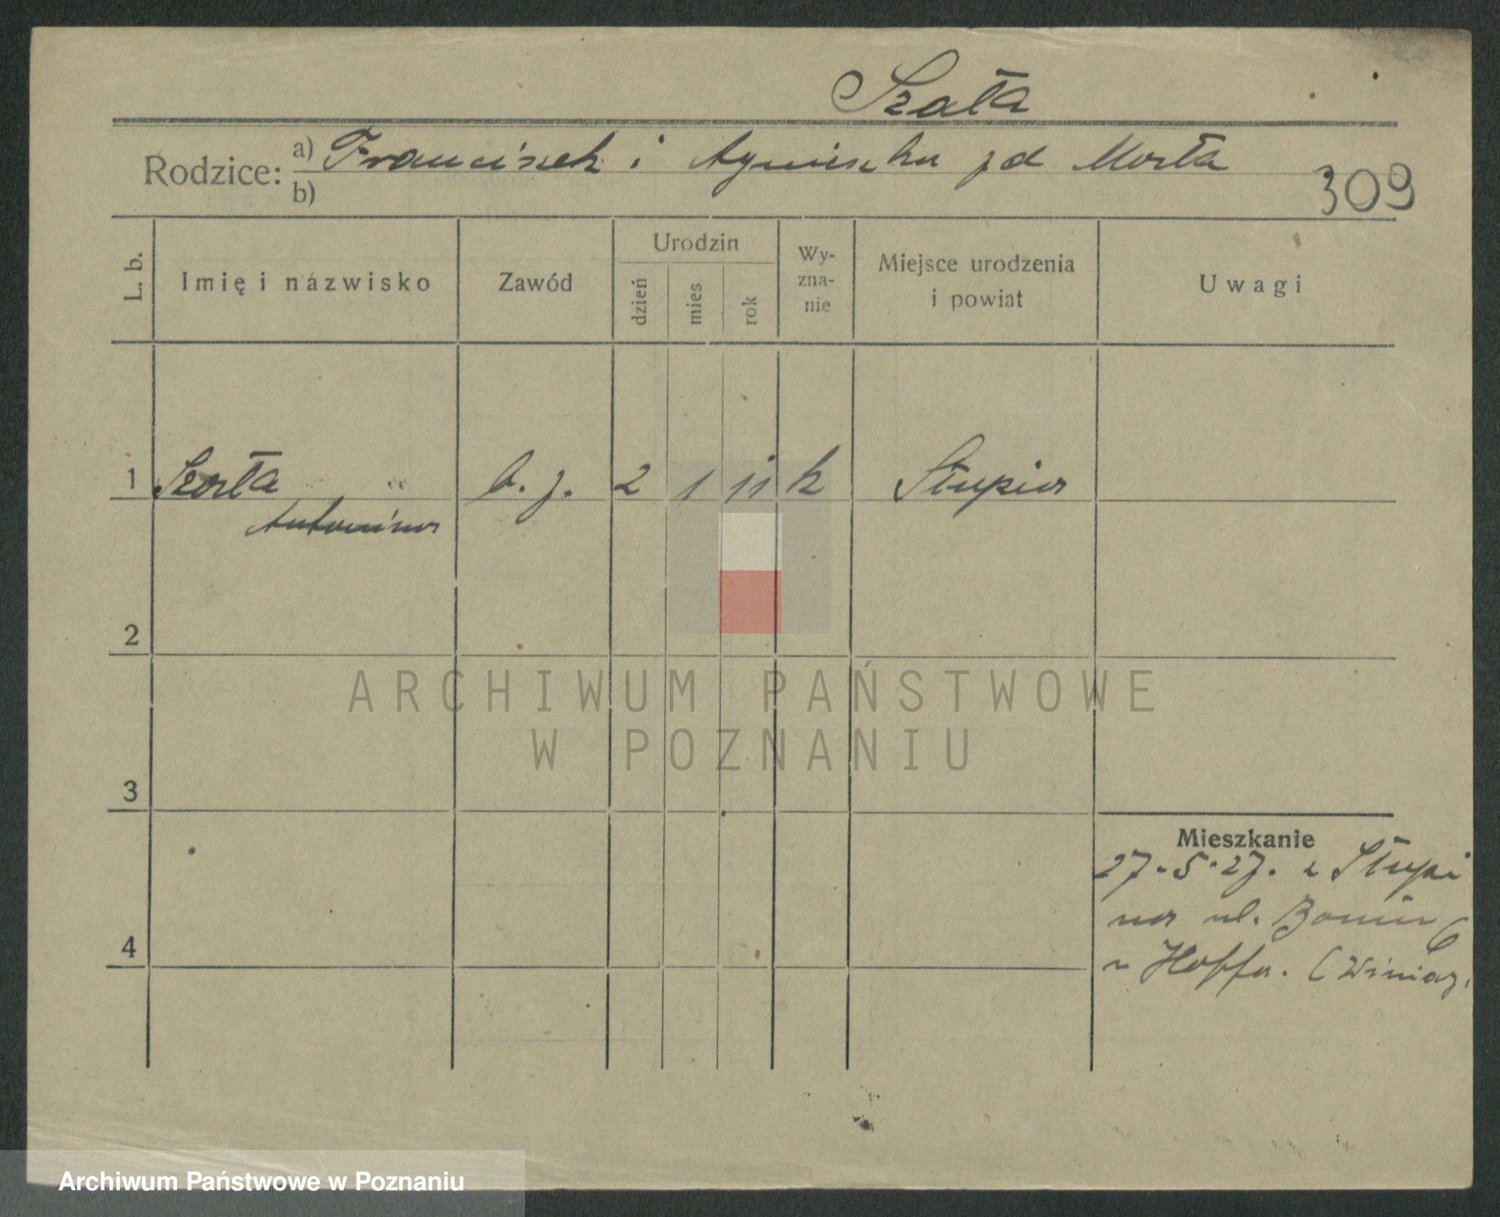 Szała
Rodzice: a) Franciszek i Agnieszka zd
b)
309
L. b. Imię i nazwisko Zawód Urodzin dzień mies rok Wy-zna-nie Miejsce urodzenia i powiat Uwagi
1 Szała b. z. 2 1 11 k Słupia
Antonina
2
ARCHIWUM PAŃSTWOWE
W POZNANIU
3
Mieszkanie
27.5.27. z Słupi
na ul. 6
4
Archiwum Państwowe w Poznaniu